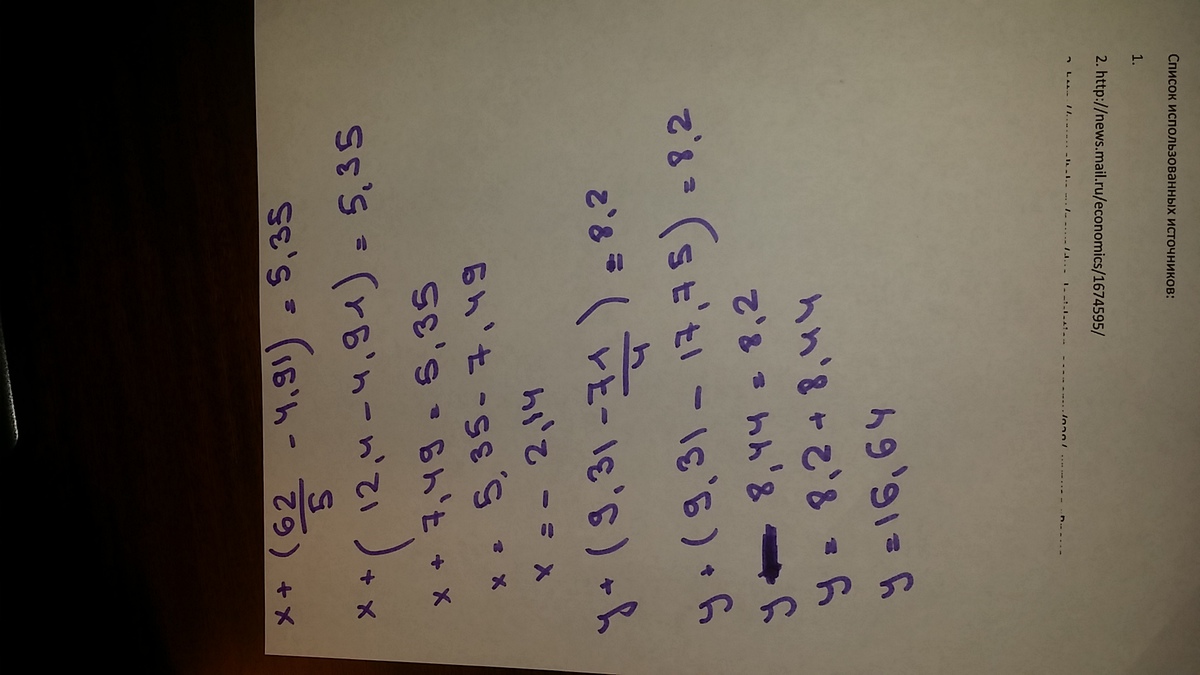 x + (62/5 - 4,91) = 5,35
x + (12,4 - 4,91) = 5,35
x + 7,49 = 5,35
x = 5,35 - 7,49
x = - 2,14
y + (9,31 - 71/4) = 8,2
y + (9,31 - 17,75) = 8,2
y - 8,44 = 8,2
y = 8,2 + 8,44
y = 16,64
Список использованных источников:
1.
2. http://news.mail.ru/economics/1674595/